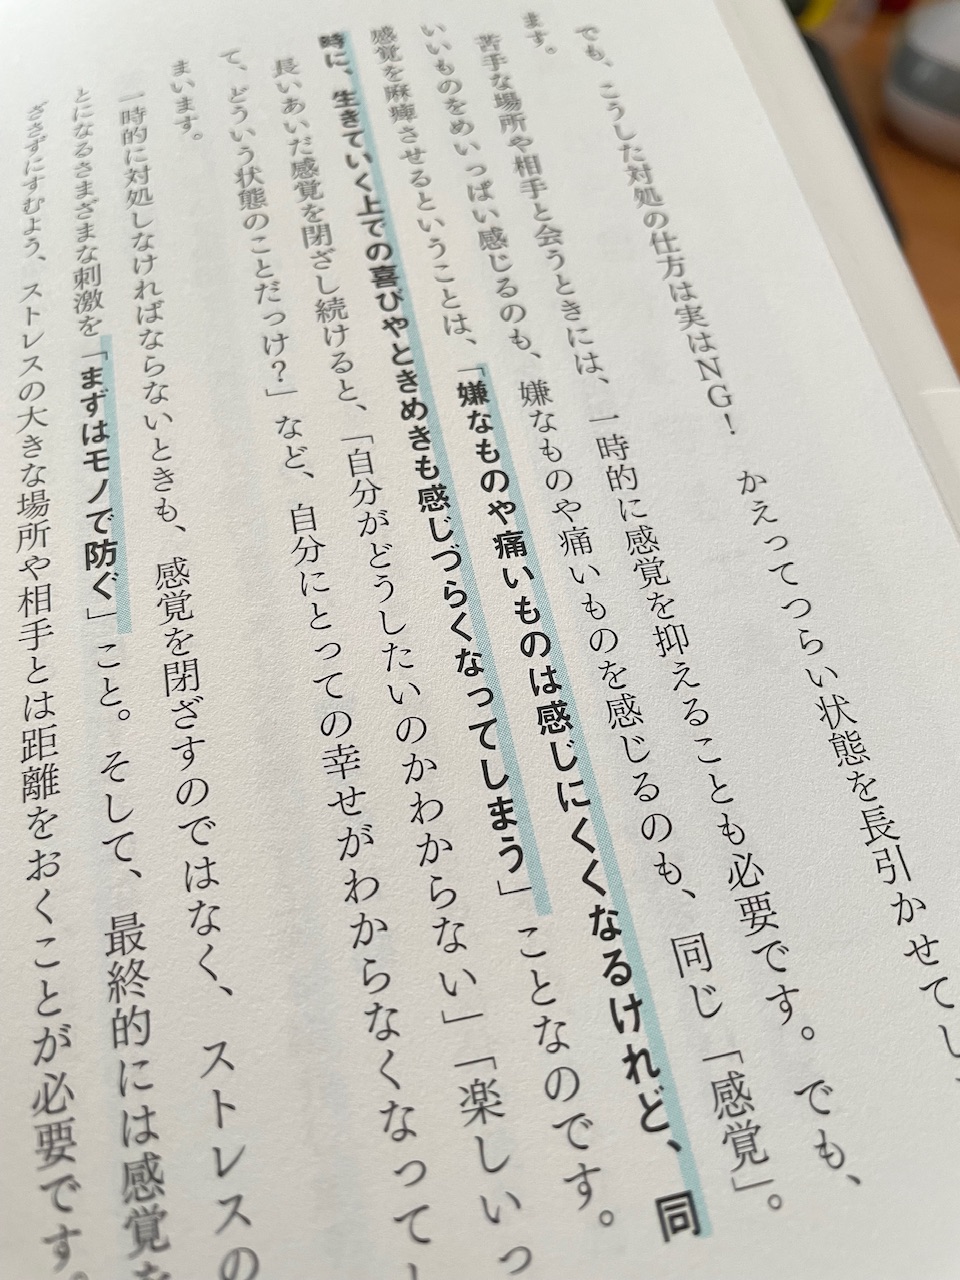 でも、こうした対処の仕方は実はNG！　かえってつらい状態を長引かせてし
ます。
苦手な場所や相手と会うときには、一時的に感覚を抑えることも必要です。でも、
いいものをめいっぱい感じるのも、嫌なものや痛いものを感じるのも、同じ「感覚」。
感覚を麻痺させるということは、「嫌なものや痛いものは感じにくくなるけれど、同
時に、生きていく上での喜びやときめきも感じづらくなってしまう」ことなのです。
長いあいだ感覚を閉ざし続けると、「自分がどうしたいのかわからない」「楽しいっ
て、どういう状態のことだっけ？」など、自分にとっての幸せがわからなくなってし
まいます。
一時的に対処しなければならないときも、感覚を閉ざすのではなく、ストレスの
とになるさまざまな刺激を「まずはモノで防ぐ」こと。そして、最終的には感覚を
ざさずにすむよう、ストレスの大きな場所や相手とは距離をおくことが必要です。